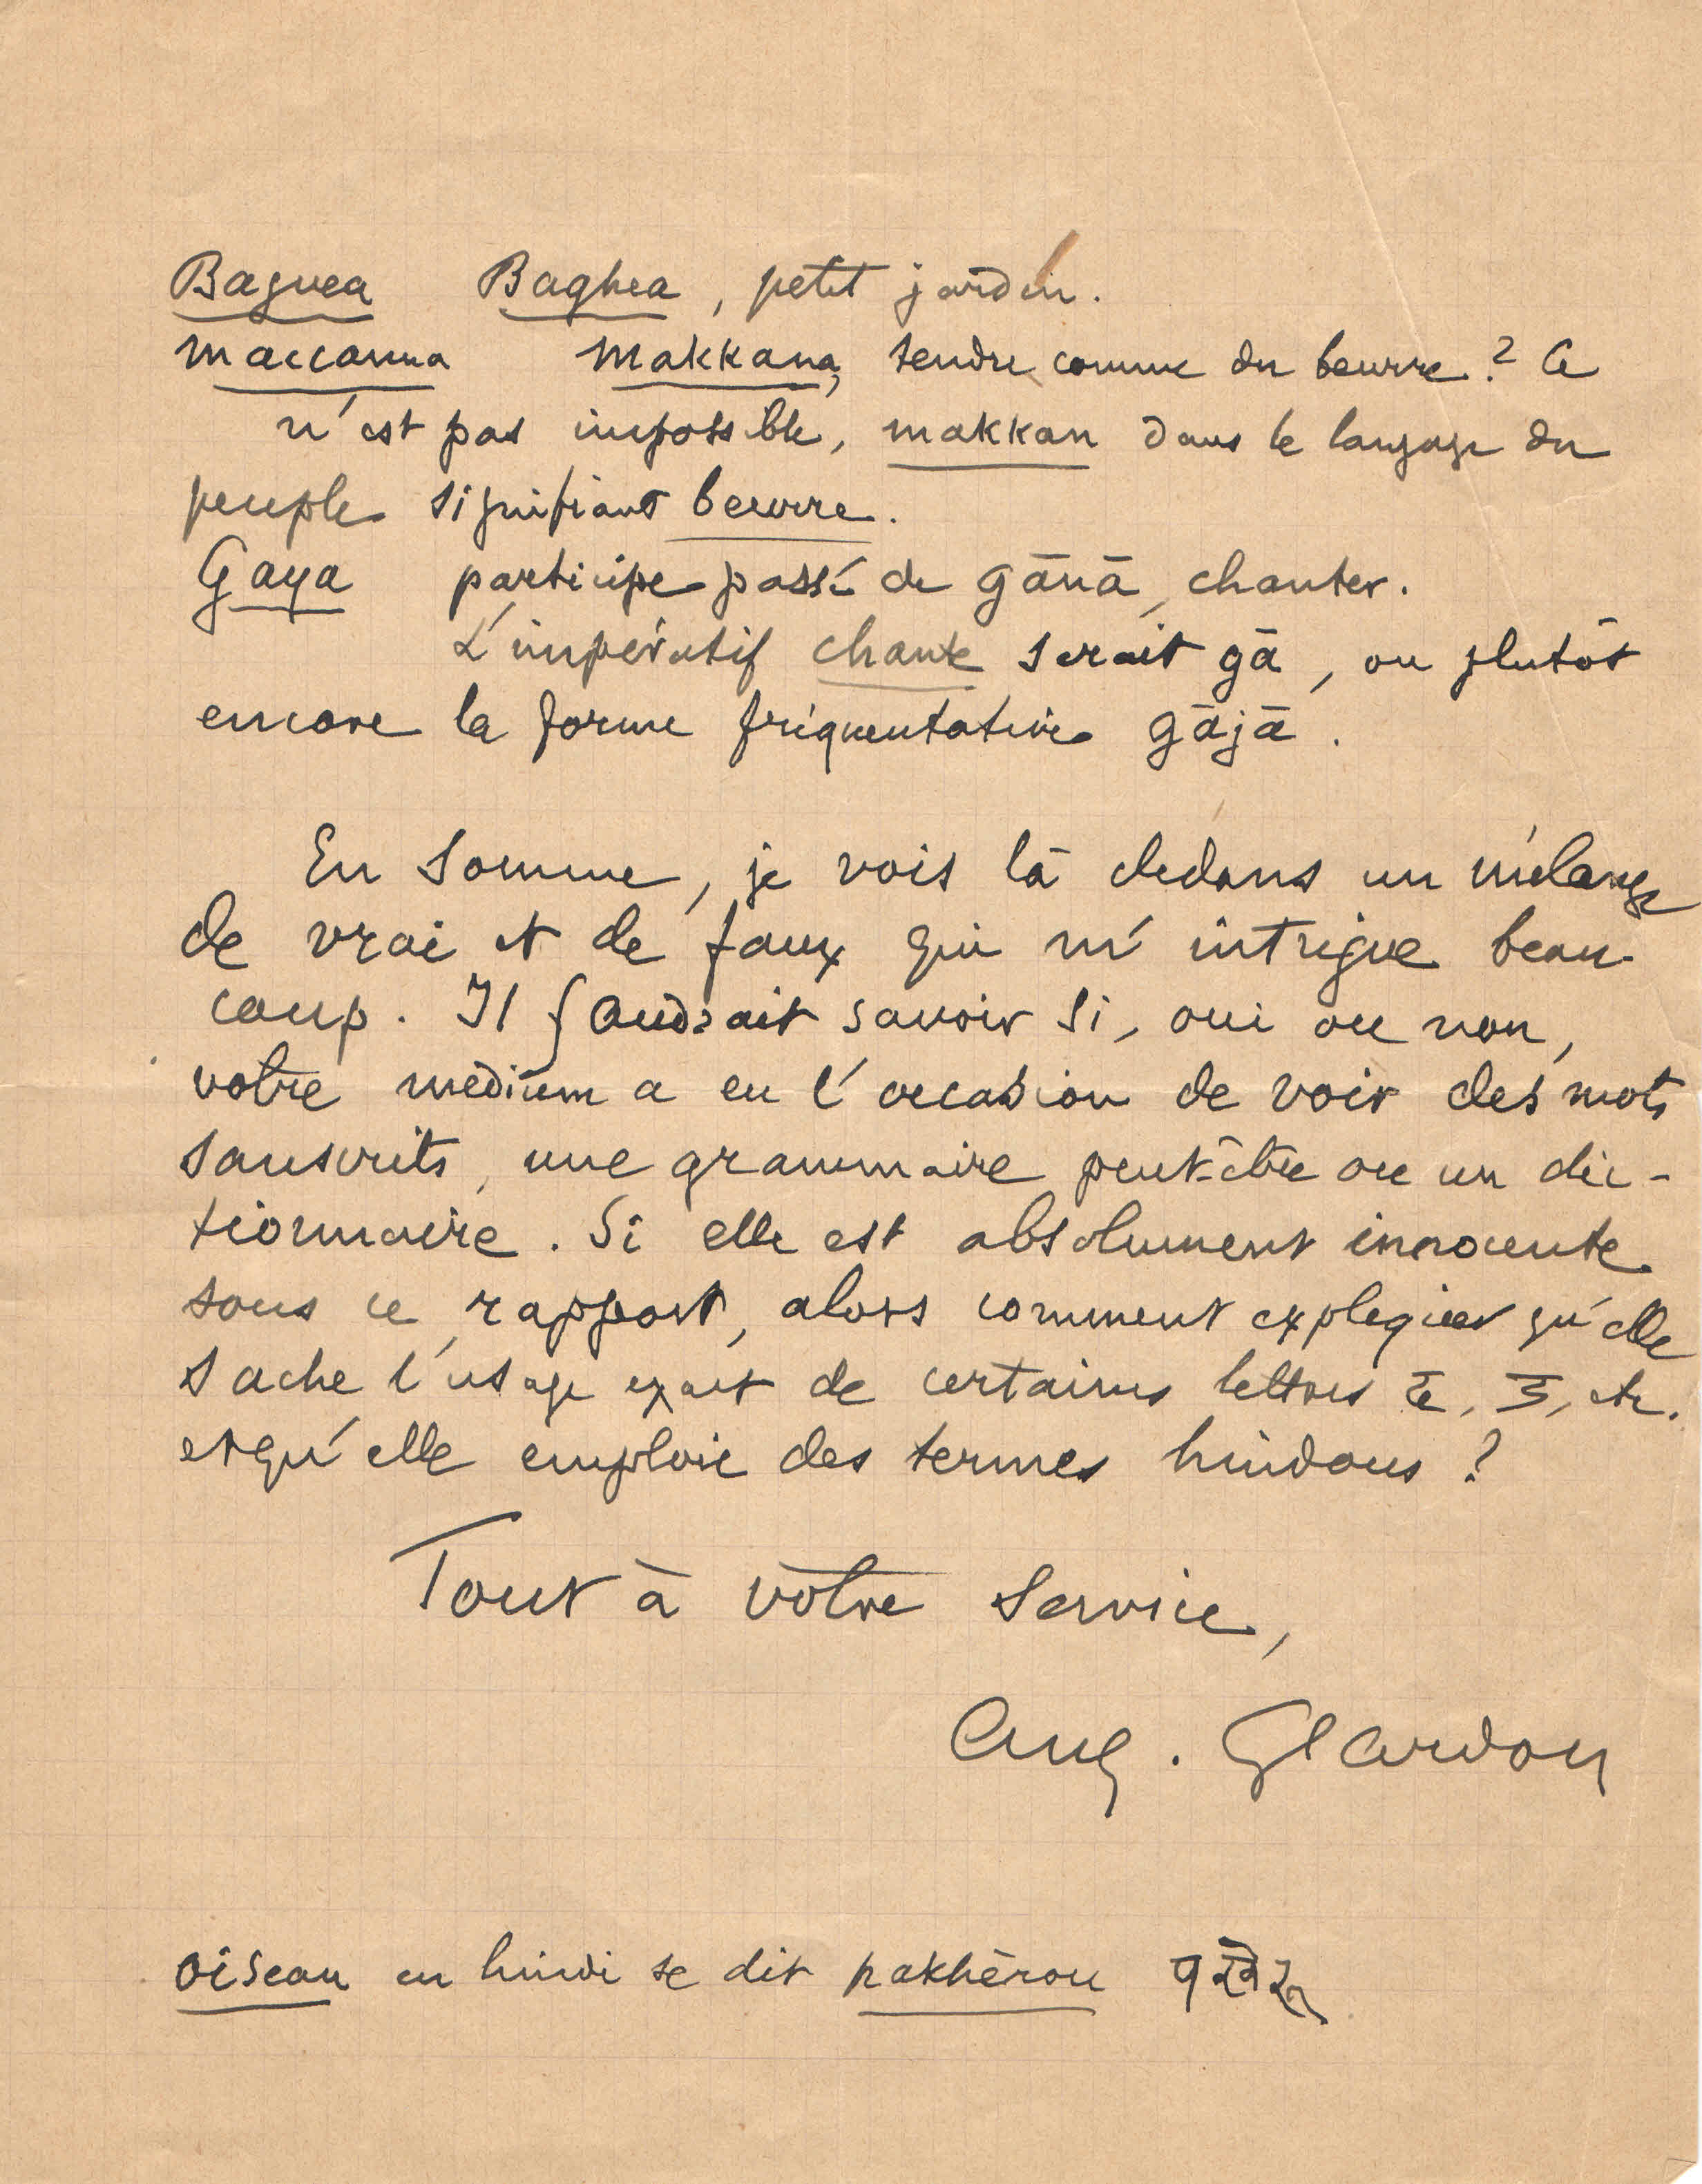 Baguea Baghea, petit jardin.
Maccanna Makkana, tendre comme du beurre? Ce
n'est pas impossible, makkan dans le langage du
peuple signifiant beurre.
Gaya participe passé de gānā, chanter.
L'impératif chante serait gā, ou plutôt
encore la forme fréquentative gājā.
En somme, je vois là dedans un mélange
de vrai et de faux qui m'intrigue beau-
coup. Il faudrait savoir si, oui ou non,
votre medium a eu l'occasion de voir des mots
sanscrits, une grammaire peut-être ou un dic-
tionnaire. Si elle est absolument innocente
sous ce rapport, alors comment expliquer qu'elle
sache l'usage exact de certaines lettres ē, etc.
et qu'elle emploie des termes hindous?
Tout à votre service,
Aug. Glardon
Oiseau en hindi se dit pakhērou